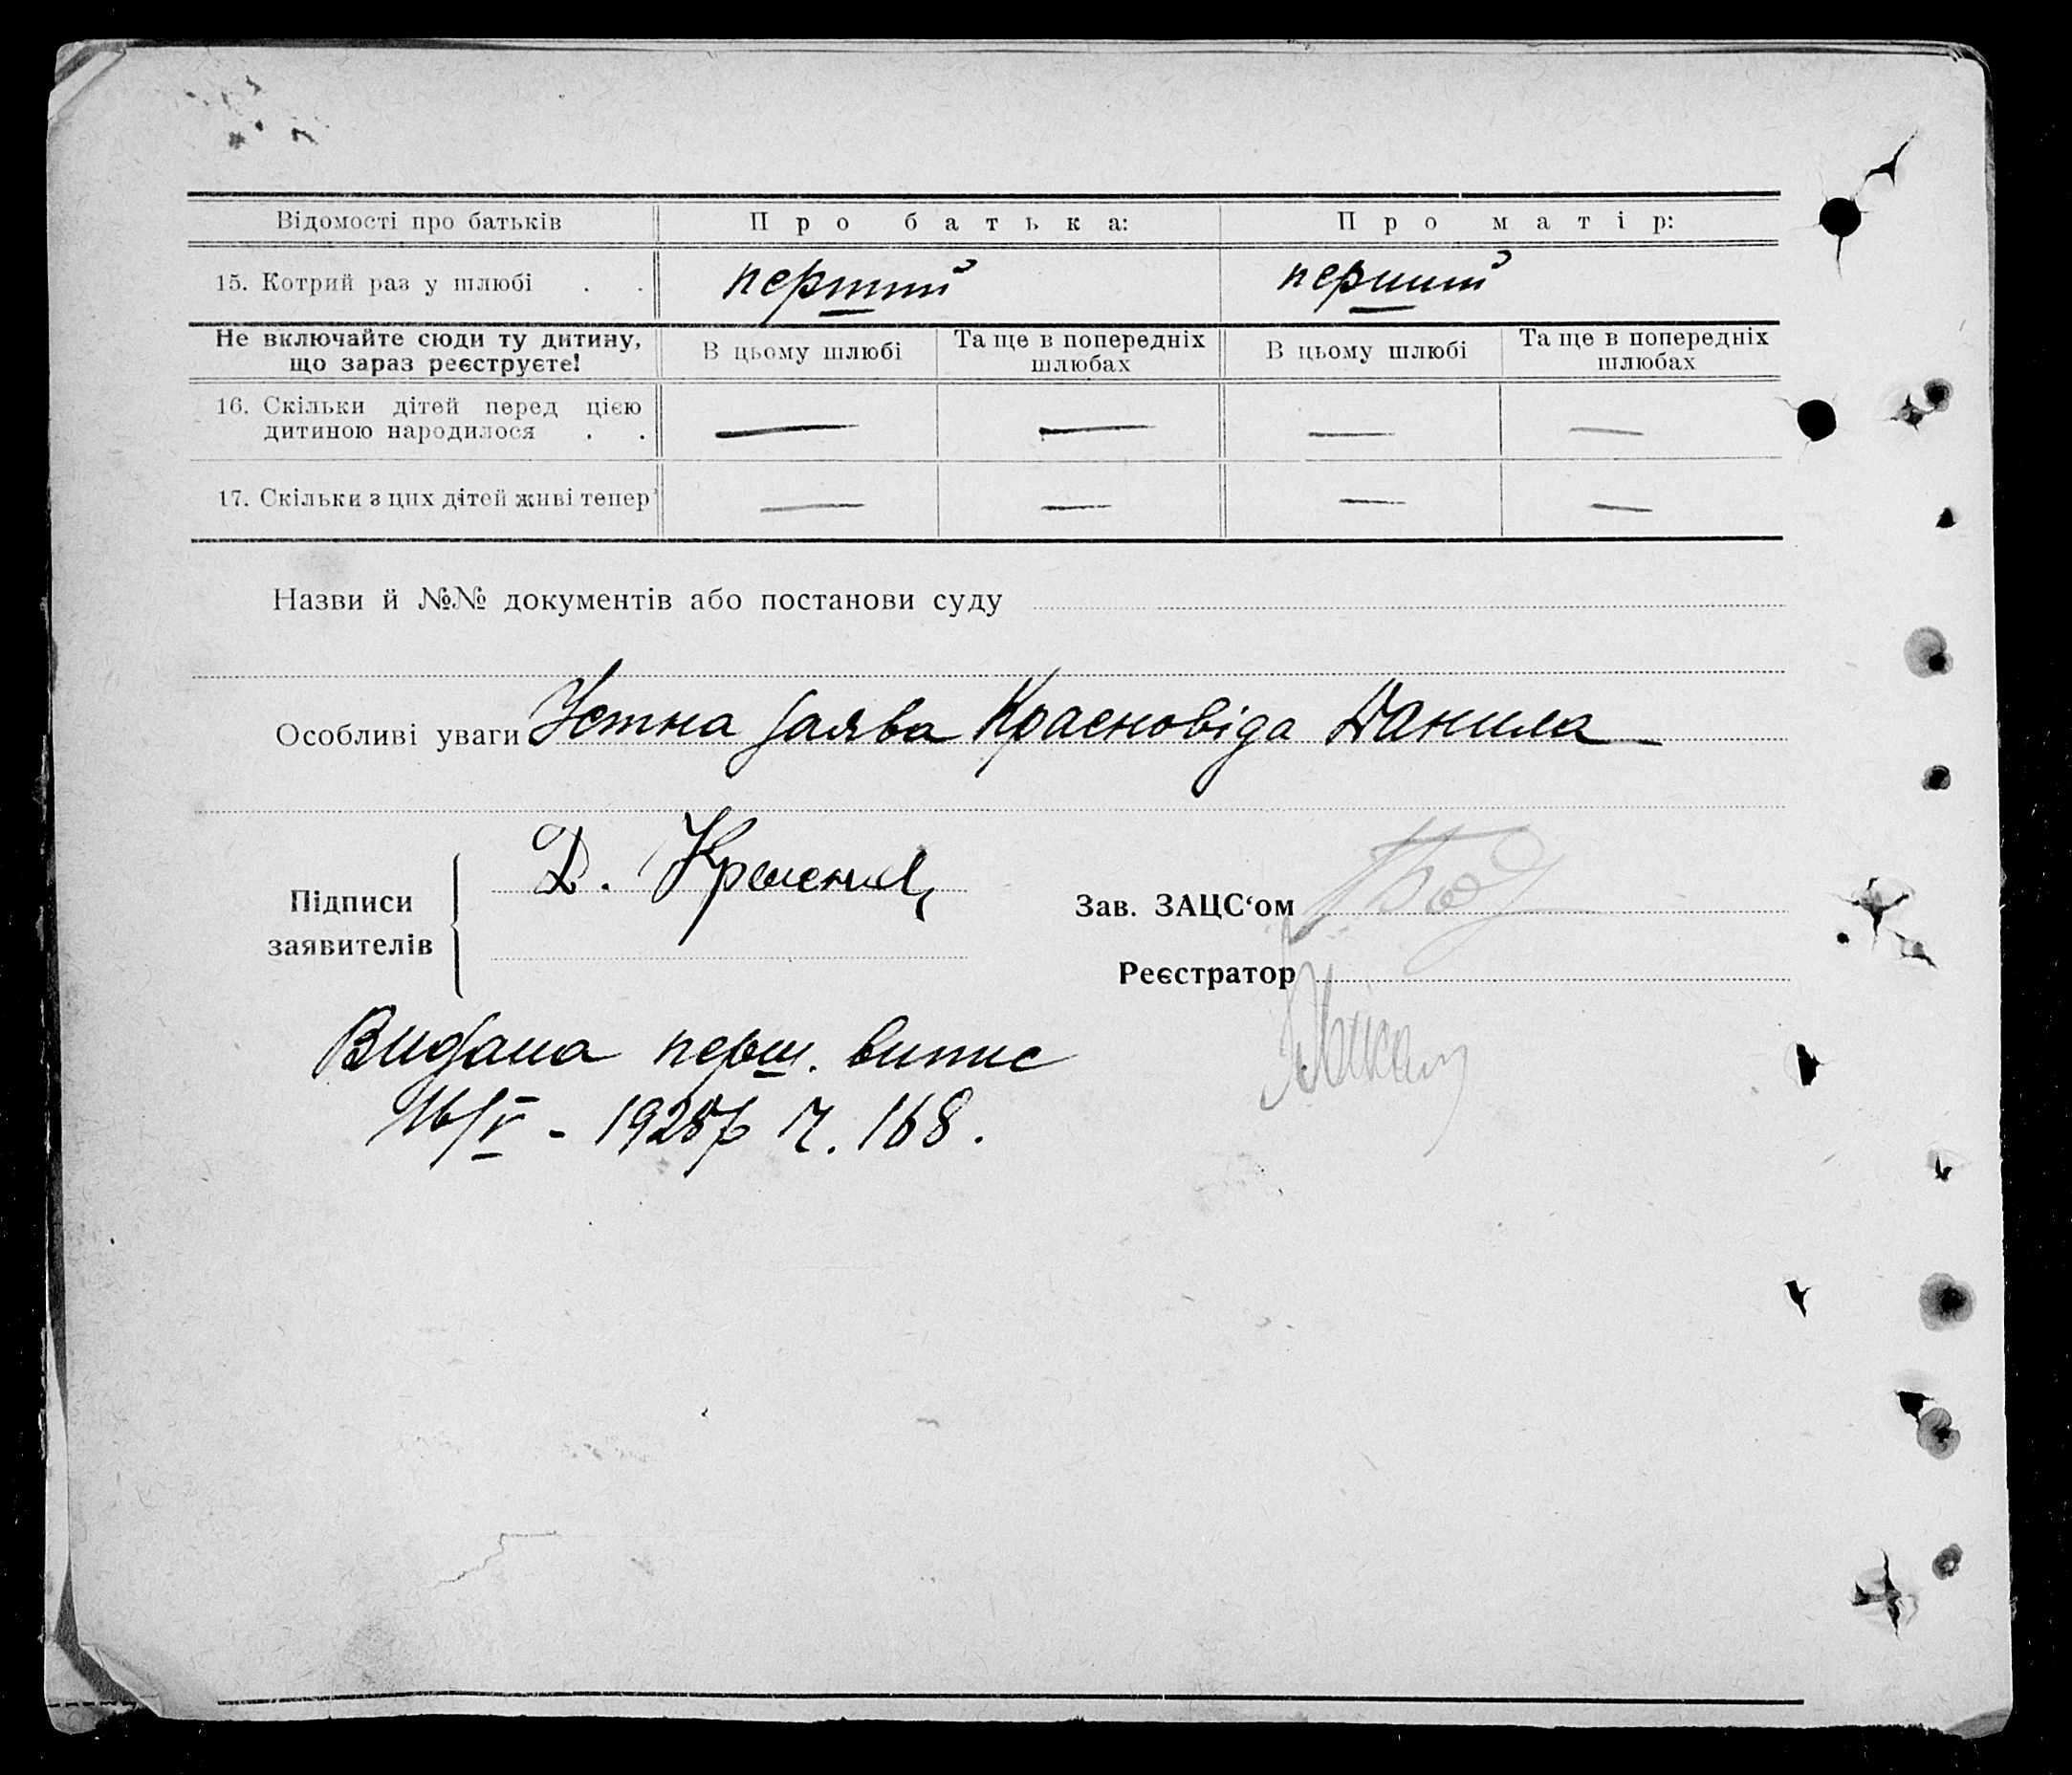 Відомості про батьків Про батька: Про матір:
15. Котрий раз у шлюбі . . перший перший
Не включайте сюди ту дитину, що зараз реєструєте!
В цьому шлюбі Та ще в попередніх шлюбах В цьому шлюбі Та ще в попередніх шлюбах
16. Скільки дітей перед цією
дитиною народилося . . — — — —
17. Скільки з цих дітей живі тепер — — — —
Назви й №№ документів або постанови суду
Особливі уваги Устна заява Красновіда Данила
Підписи
заявителів
Д.
Зав. ЗАЦС‘ом
Реєстратор
Видана перш. випис
16/V - 192 р Ч. 168.